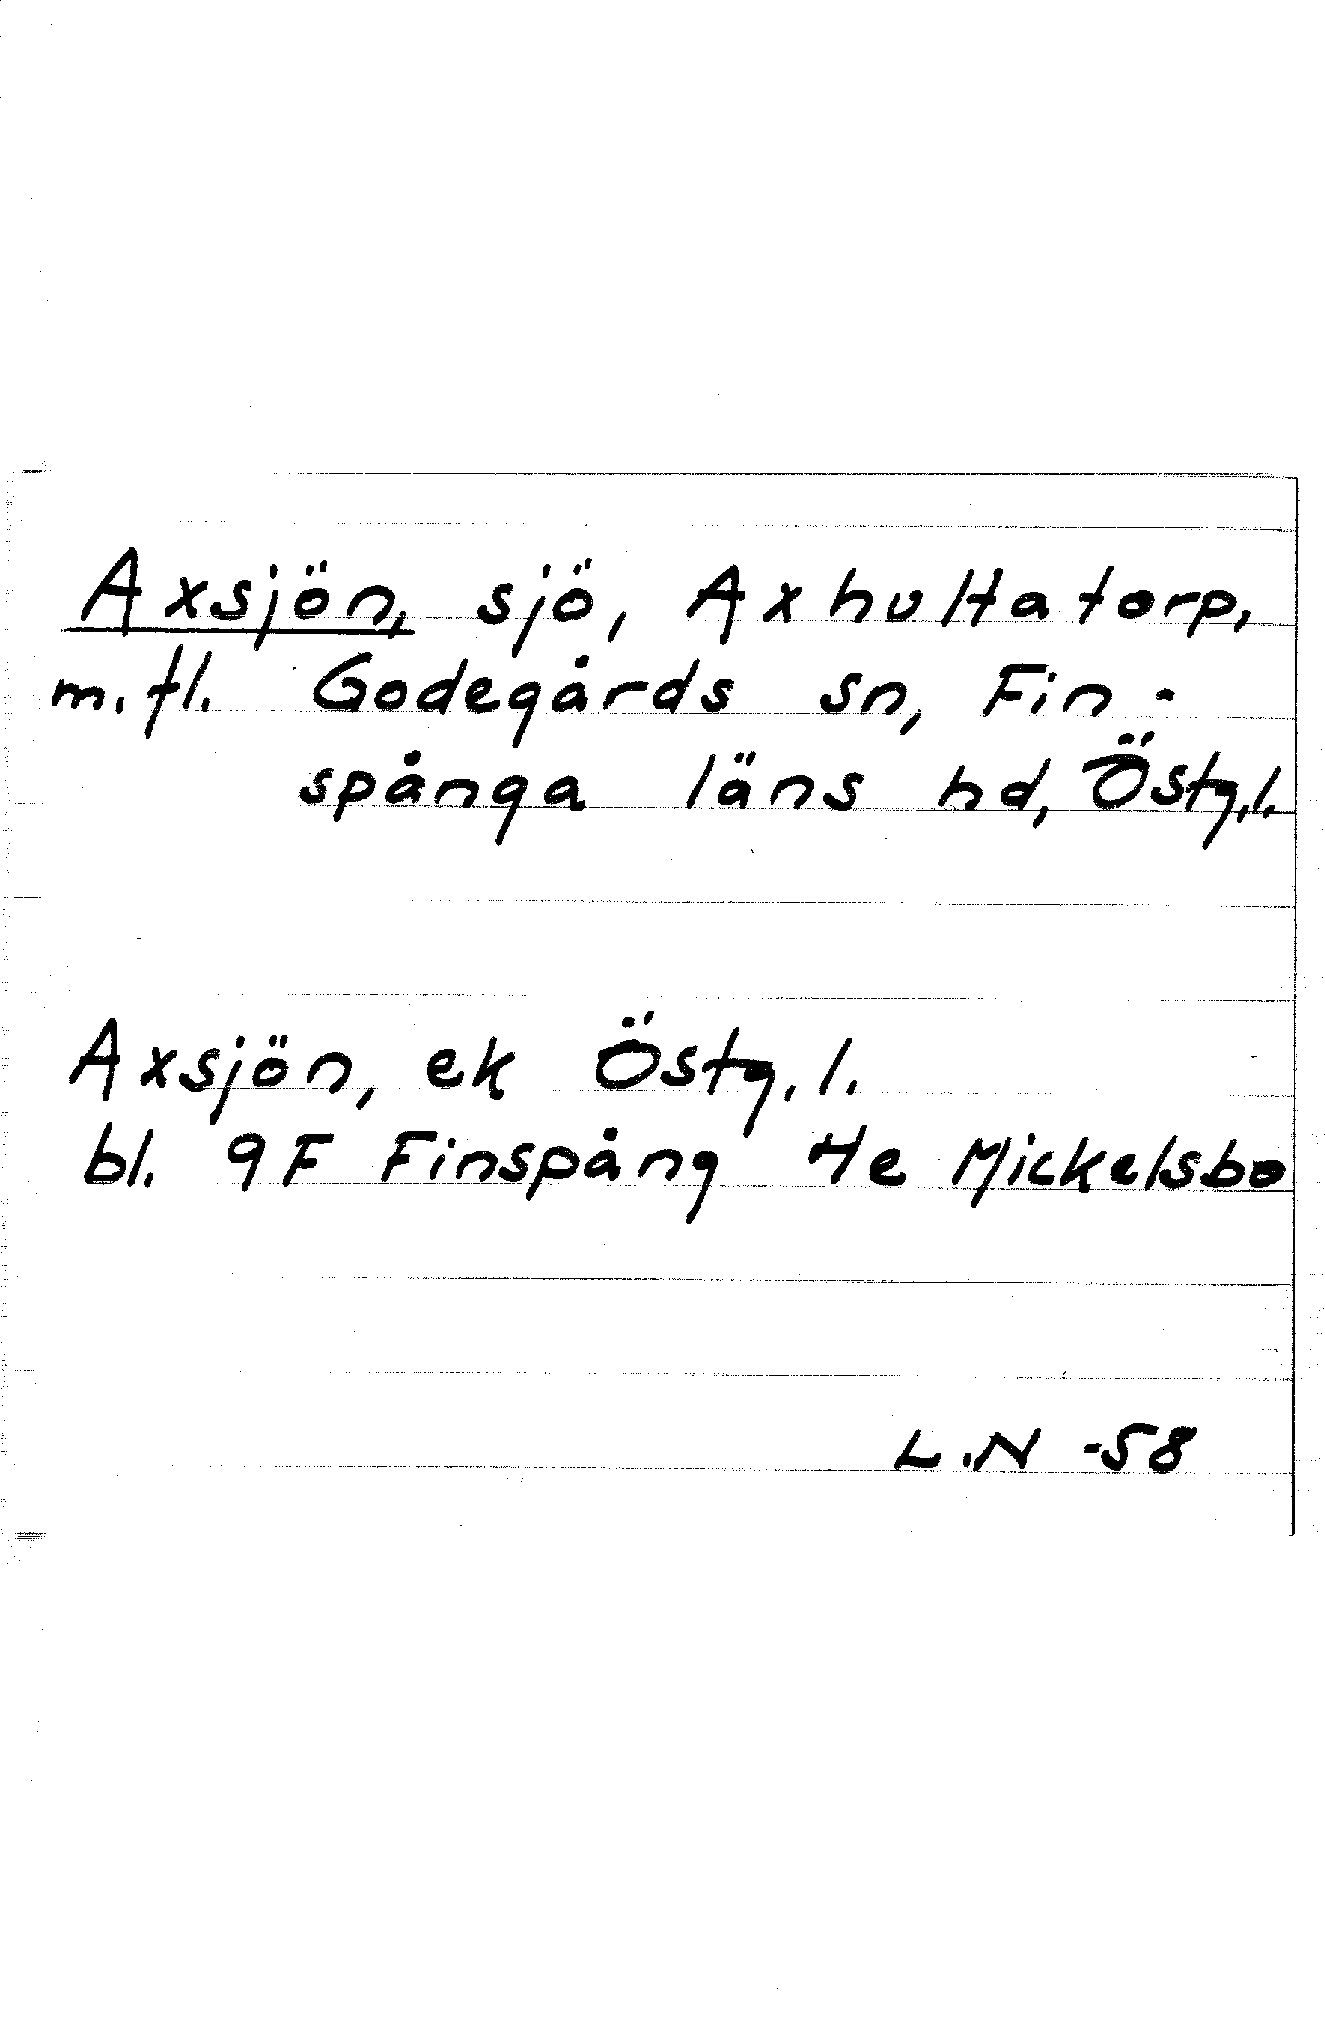 Axsjön, sjö, Axhultatorp,
m. fl. Godegårds sn, Fin-
spånga läns hd, Östg.l.
Axsjön, ek Östg.l.
bl. 9F Finspång 4e Mickelsbo
L.N -58